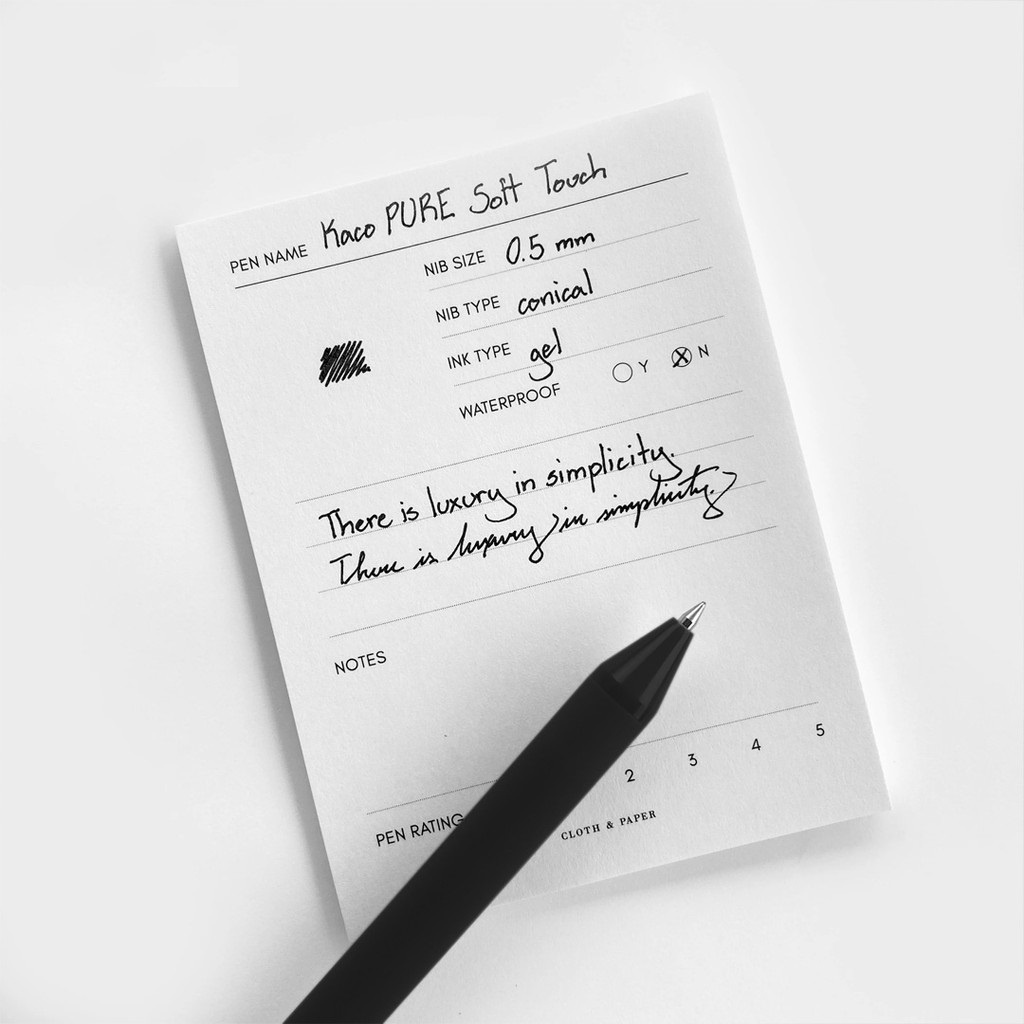 PEN NAME Kaco PURE Soft Touch
NIB SIZE 0.5 mm
NIB TYPE conical
INK TYPE gel
WATERPROOF Y N
There is luxury in simplicity.
There is luxury in simplicity.
NOTES
PEN RATING 2 3 4 5
CLOTH & PAPER